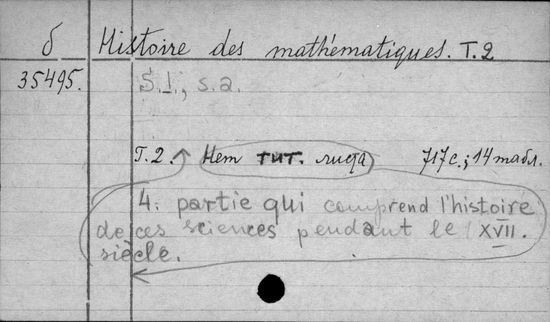 б Histoire des mathématiques. T.2
35495. S.l., s.a.
T.2. Нет тит. листа 717с.; 14 табл.
4. partie qui comprend l'histoire
de ces sciences pendant le XVII.
siècle.